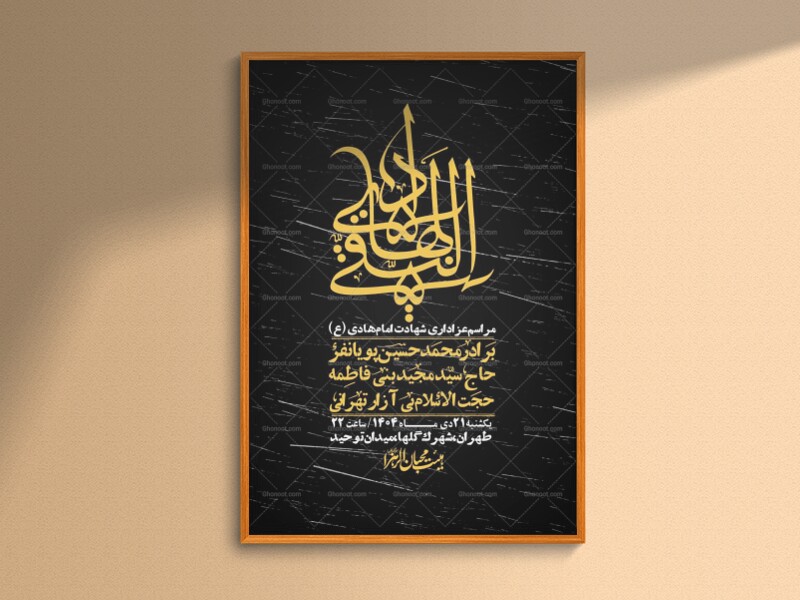 مراسم عزاداری شهادت امام هادی (ع)
برادر محمدحسین پویانفر
حاج سیّدمجید بنی فاطمه
حجت الاسلام بی آزار تهرانی
یکشنبه ۲۱ دی مـــاه ۱۴۰۴ / ساعت ۲۲
طهران، شهرک گلها، میدان توحید
هیئت محبان الزهرا
Ghonoot.com